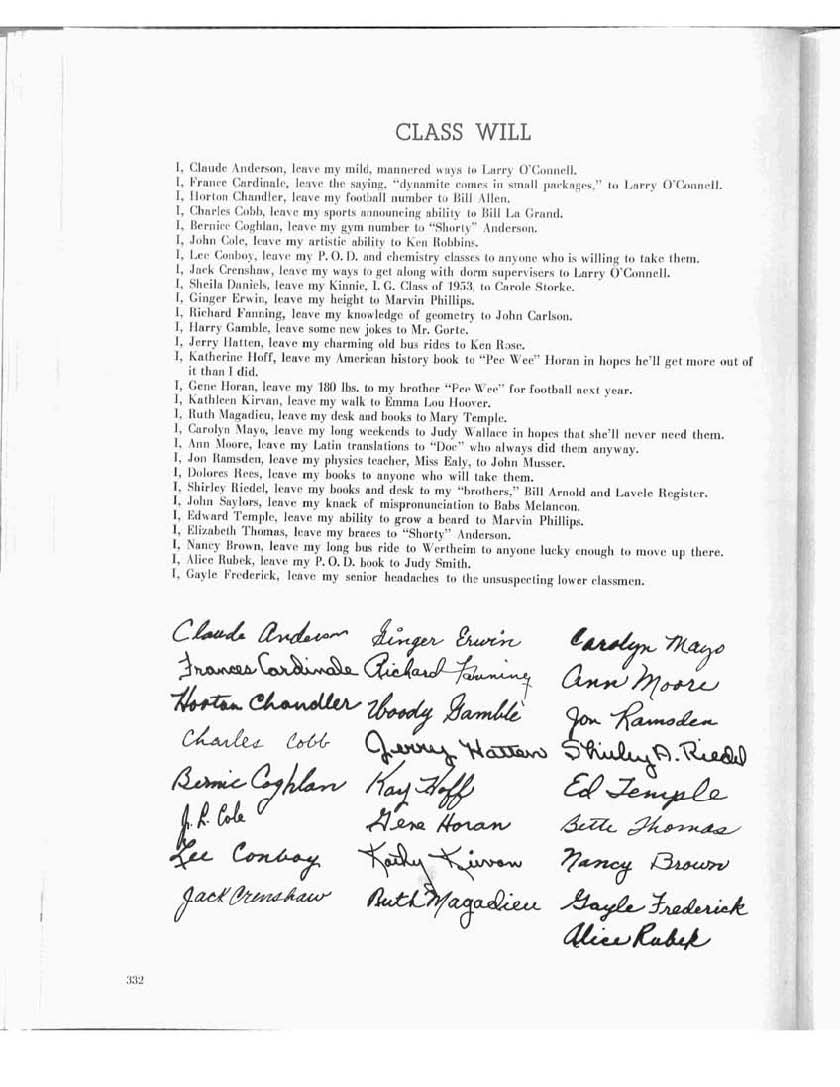 CLASS WILL
I, Claude Anderson, leave my mild, mannered ways to Larry O'Connell.
I, France Cardinale, leave the saying, "dynamite comes in small packages," to Larry O'Connell.
I, Horton Chandler, leave my football number to Bill Allen.
I, Charles Cobb, leave my sports announcing ability to Bill La Grand.
I, Bernice Coghlan, leave my gym number to "Shorty" Anderson.
I, John Cole, leave my artistic ability to Ken Robbins.
I, Lee Conboy, leave my P. O. D. and chemistry classes to anyone who is willing to take them.
I, Jack Crenshaw, leave my ways to get along with dorm supervisers to Larry O'Connell.
I, Sheila Daniels, leave my Kinnie, I. G. Class of 1953, to Carole Storke.
I, Ginger Erwin, leave my height to Marvin Phillips.
I, Richard Fanning, leave my knowledge of geometry to John Carlson.
I, Harry Gamble, leave some new jokes to Mr. Gorte.
I, Jerry Hatten, leave my charming old bus rides to Ken Rose.
I, Katherine Hoff, leave my American history book to "Pee Wee" Horan in hopes he'll get more out of
it than I did.
I, Gene Horan, leave my 180 lbs. to my brother "Pee Wee" for football next year.
I, Kathleen Kirvan, leave my walk to Emma Lou Hoover.
I, Ruth Magadieu, leave my desk and books to Mary Temple.
I, Carolyn Mayo, leave my long weekends to Judy Wallace in hopes that she'll never need them.
I, Ann Moore, leave my Latin translations to "Doc" who always did them anyway.
I, Jon Ramsden, leave my physics teacher, Miss Ealy, to John Musser.
I, Dolores Rees, leave my books to anyone who will take them.
I, Shirley Riedel, leave my books and desk to my "brothers," Bill Arnold and Lavele Register.
I, John Saylors, leave my knack of mispronunciation to Babs Melancon.
I, Edward Temple, leave my ability to grow a beard to Marvin Phillips.
I, Elizabeth Thomas, leave my braces to "Shorty" Anderson.
I, Nancy Brown, leave my long bus ride to Wertheim to anyone lucky enough to move up there.
I, Alice Rubek, leave my P. O. D. book to Judy Smith.
I, Gayle Frederick, leave my senior headaches to the unsuspecting lower classmen.
Claude Anderson Ginger Erwin Carolyn Mayo
Frances Cardinale Richard Fanning Ann Moore
Hooton Chandler Woody Gamble Jon Ramsden
Charles Cobb Jerry Hatten Shirley A. Riedel
Bernie Coghlan Kay Hoff Ed Temple
J. R. Cole Gene Horan Bette Thomas
Lee Conboy Kathy Kirvan Nancy Brown
Jack Crenshaw Ruth Magadieu Gayle Frederick
Alice Rubek
332